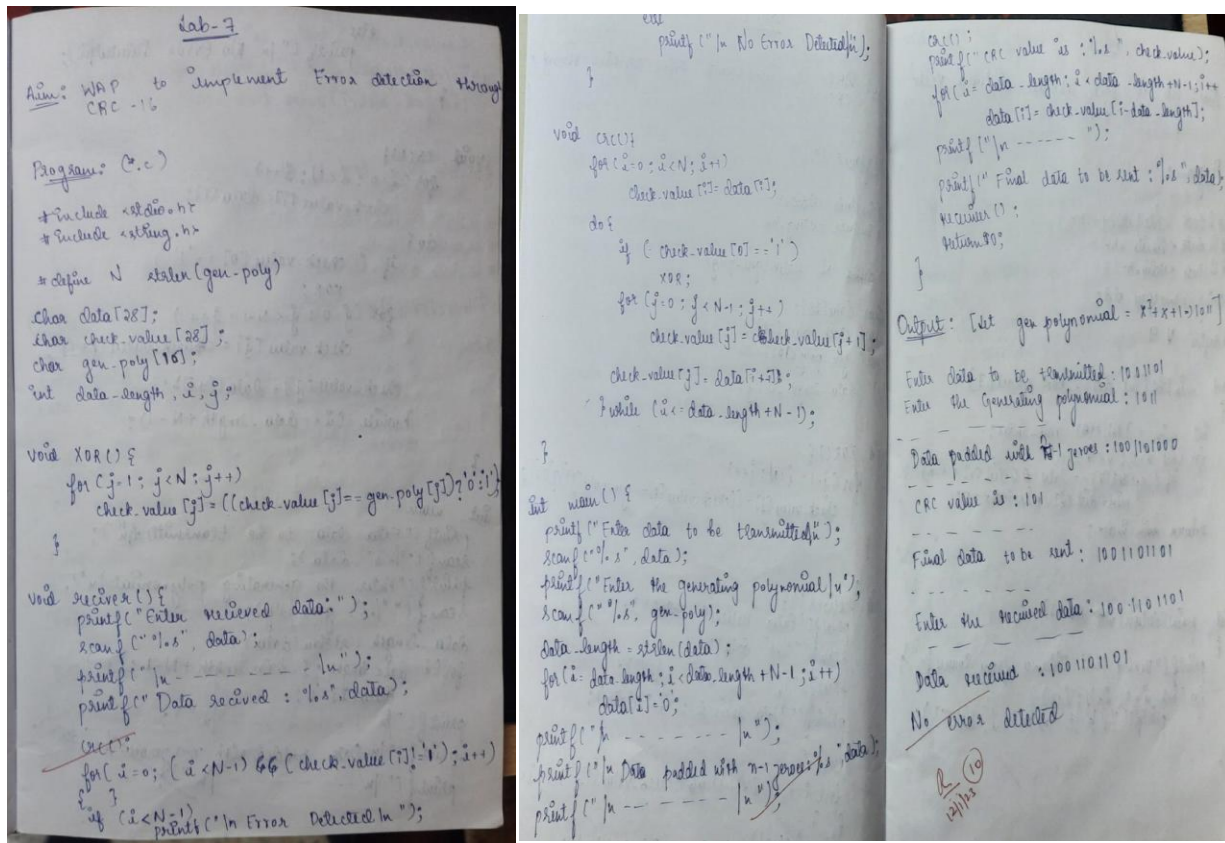 Lab-7
Aim: WAP to implement Error detection through
CRC-16
Program: (*.c)
#include <stdio.h>
#include <string.h>
#define N strlen(gen-poly)
char data[28];
char check-value[28];
char gen-poly[10];
int data-length, i, j;
void XOR(){
for (j=1; j<N; j++)
check-value[j]=((check-value[j]==gen-poly[j])?'0':'1');
}
void reciver(){
printf("Enter recieved data:");
scanf("%s", data);
printf("\n - - - - - - - \n");
printf("Data recived : %s", data);
crc();
for(i=0; (i<N-1) && (check-value[i]!='1'); i++)
{ }
if (i<N-1)
printf("\n Error Detected \n");
else
printf("\n No Error Detected\n");
}
void crc(){
for(i=0; i<N; i++)
check-value[i]=data[i];
do{
if (check-value[0]=='1')
XOR;
for (j=0; j<N-1; j++)
check-value[j]=check-value[j+1];
check-value[j]=data[i++];
}while (i<=data-length+N-1);
}
int main(){
printf("Enter data to be transmitted\n");
scanf("%s", data);
printf("Enter the generating polynomial \n");
scanf("%s", gen-poly);
data-length=strlen(data);
for(i=data-length; i<data-length+N-1; i++)
data[i]='0';
printf("\n - - - - - - - \n");
printf("\n Data padded with n-1 zeroes:%s",data);
printf("\n - - - - - - - \n");
crc();
printf("CRC value is : %s", check-value);
for(i=data-length; i<data-length+N-1; i++
data[i]=check-value[i-data-length];
printf("\n - - - - - - ");
printf("Final data to be sent : %s",data);
reciever();
return 0;
}
Output: [Set gen polynomial = x³+x+1 => 1011]
Enter data to be transmitted : 1001101
Enter the Generating polynomial : 1011
- - - - - - - - - -
Data padded with n-1 zeroes : 1001101000
- - - - - - - - - -
CRC value is : 101
- - - - - - -
Final data to be sent : 1001101101
- - - - - - - - -
Enter the recieved data : 1001101101
- - - - - - -
Data received : 1001101101
No error detected
10
12/1/23